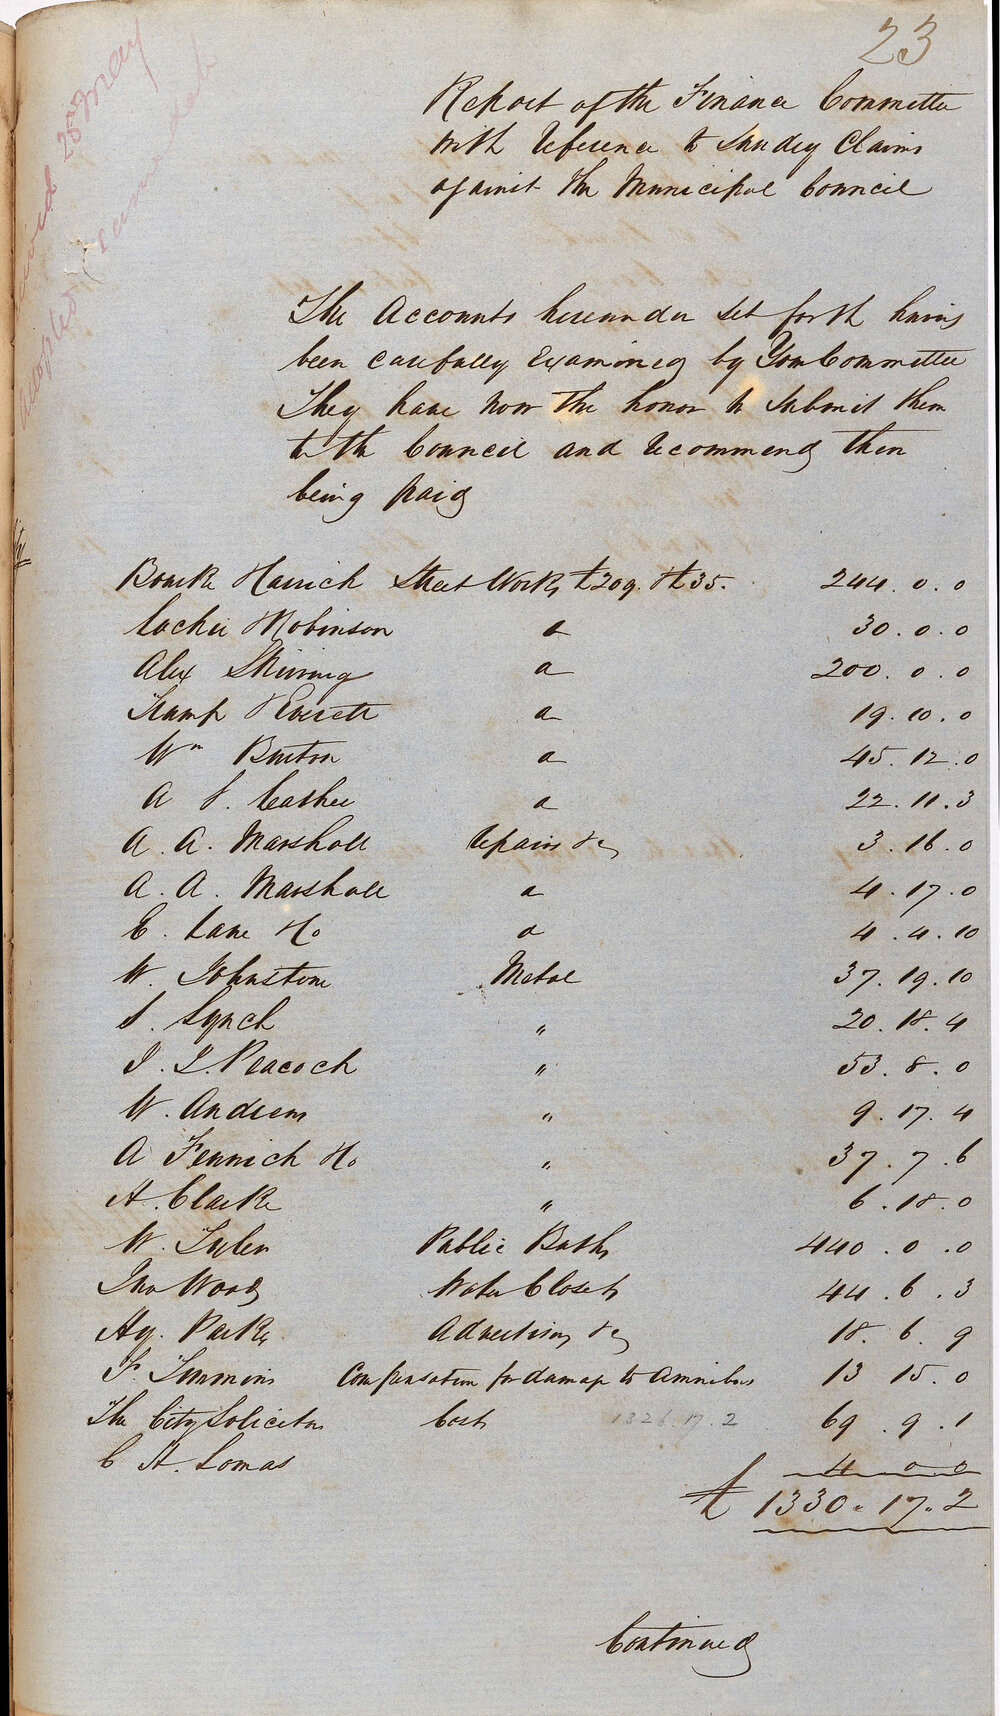 23
25 May
Report of the Finance Committee
with reference to Sundry Claims
against the Municipal Council
The Accounts hereunder set forth having
been carefully Examined by Your Committee
They have now the honor to submit them
to the Council and recommend them
being paid
Bourke Street Works £209. & £35. 244.0.0
Robinson a 30.0.0
Alex Skirving a 200.0.0
Stamp & Everett a 19.10.0
Wm Burton a 45.12.0
A S. a 22.11.3
A. A. Marshall repairs &c 3.16.0
A. A. Marshall a 4.17.0
E. Lane Ho a 4.4.10
W. Johnstone Metal 37.19.10
S. Lynch " 20.18.4
J. J. Peacock " 53.8.0
W. Andrews " 9.17.4
A Fennich Ho " 37.7.6
H. Clarke " 6.18.0
W. Public Baths 440.0.0
Jno Wood Water Closets 44.6.3
Hy. Parkes Advertising &c 18.6.9
F. Simmons Compensation for damage to Omnibus 13 15.0
The City Solicitor Costs 1326.17.2 69.9.1
C H. Lomas 4 0 0
£ 1330.17.2
Continued